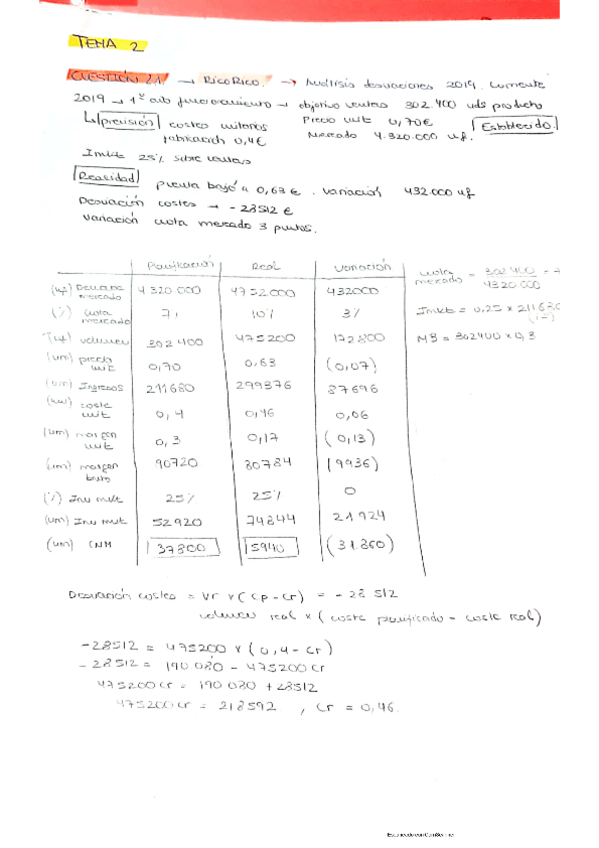 TEMA 2
CUESTIÓN 2.1 → RICORICO. → Análisis desviaciones 2019. Comente
2019 → 1º año funcionamiento → objetivo ventas 302.400 uds producto
↳ previsión costes unitarios Precio unit 0,70€ Establecido
fabricación 0,4€ Mercado 4.320.000 uf.
Inmkt 25% sobre ventas
Realidad precio bajó a 0,63€. variación 432.000 uf
Desviación costes → -28512 €
variación cuota mercado 3 puntos.
Planificación Real Variación
(uf) Demanda mercado 4320.000 4752000 432000
(%) cuota mercado 7% 10% 3%
(uf) volumen 302400 475200 172800
(um) precio unit 0,70 0,63 (0,07)
(um) Ingresos 211680 299376 87696
(um) coste unit 0,4 0,46 0,06
(um) margen unit 0,3 0,17 (0,13)
(um) margen bruto 90720 80784 (9936)
(%) Inv mkt 25% 25% 0
(um) Inv mkt 52920 74844 21924
(um) CNM 37800 5940 (31.860)
cuota mercado = 302400 / 4320.000 =
Inmkt = 0,25 x 211680
MB = 302400 x 0,3
Desviación costes = Vr x (cp - cr) = - 28 512
volumen real x (coste planificado - coste real)
-28512 = 475200 x (0,4 - cr)
-28512 = 190 080 - 475200 cr
475200 cr = 190 080 + 28512
475200 cr = 218592 , cr = 0,46.
Escaneado con CamScanner